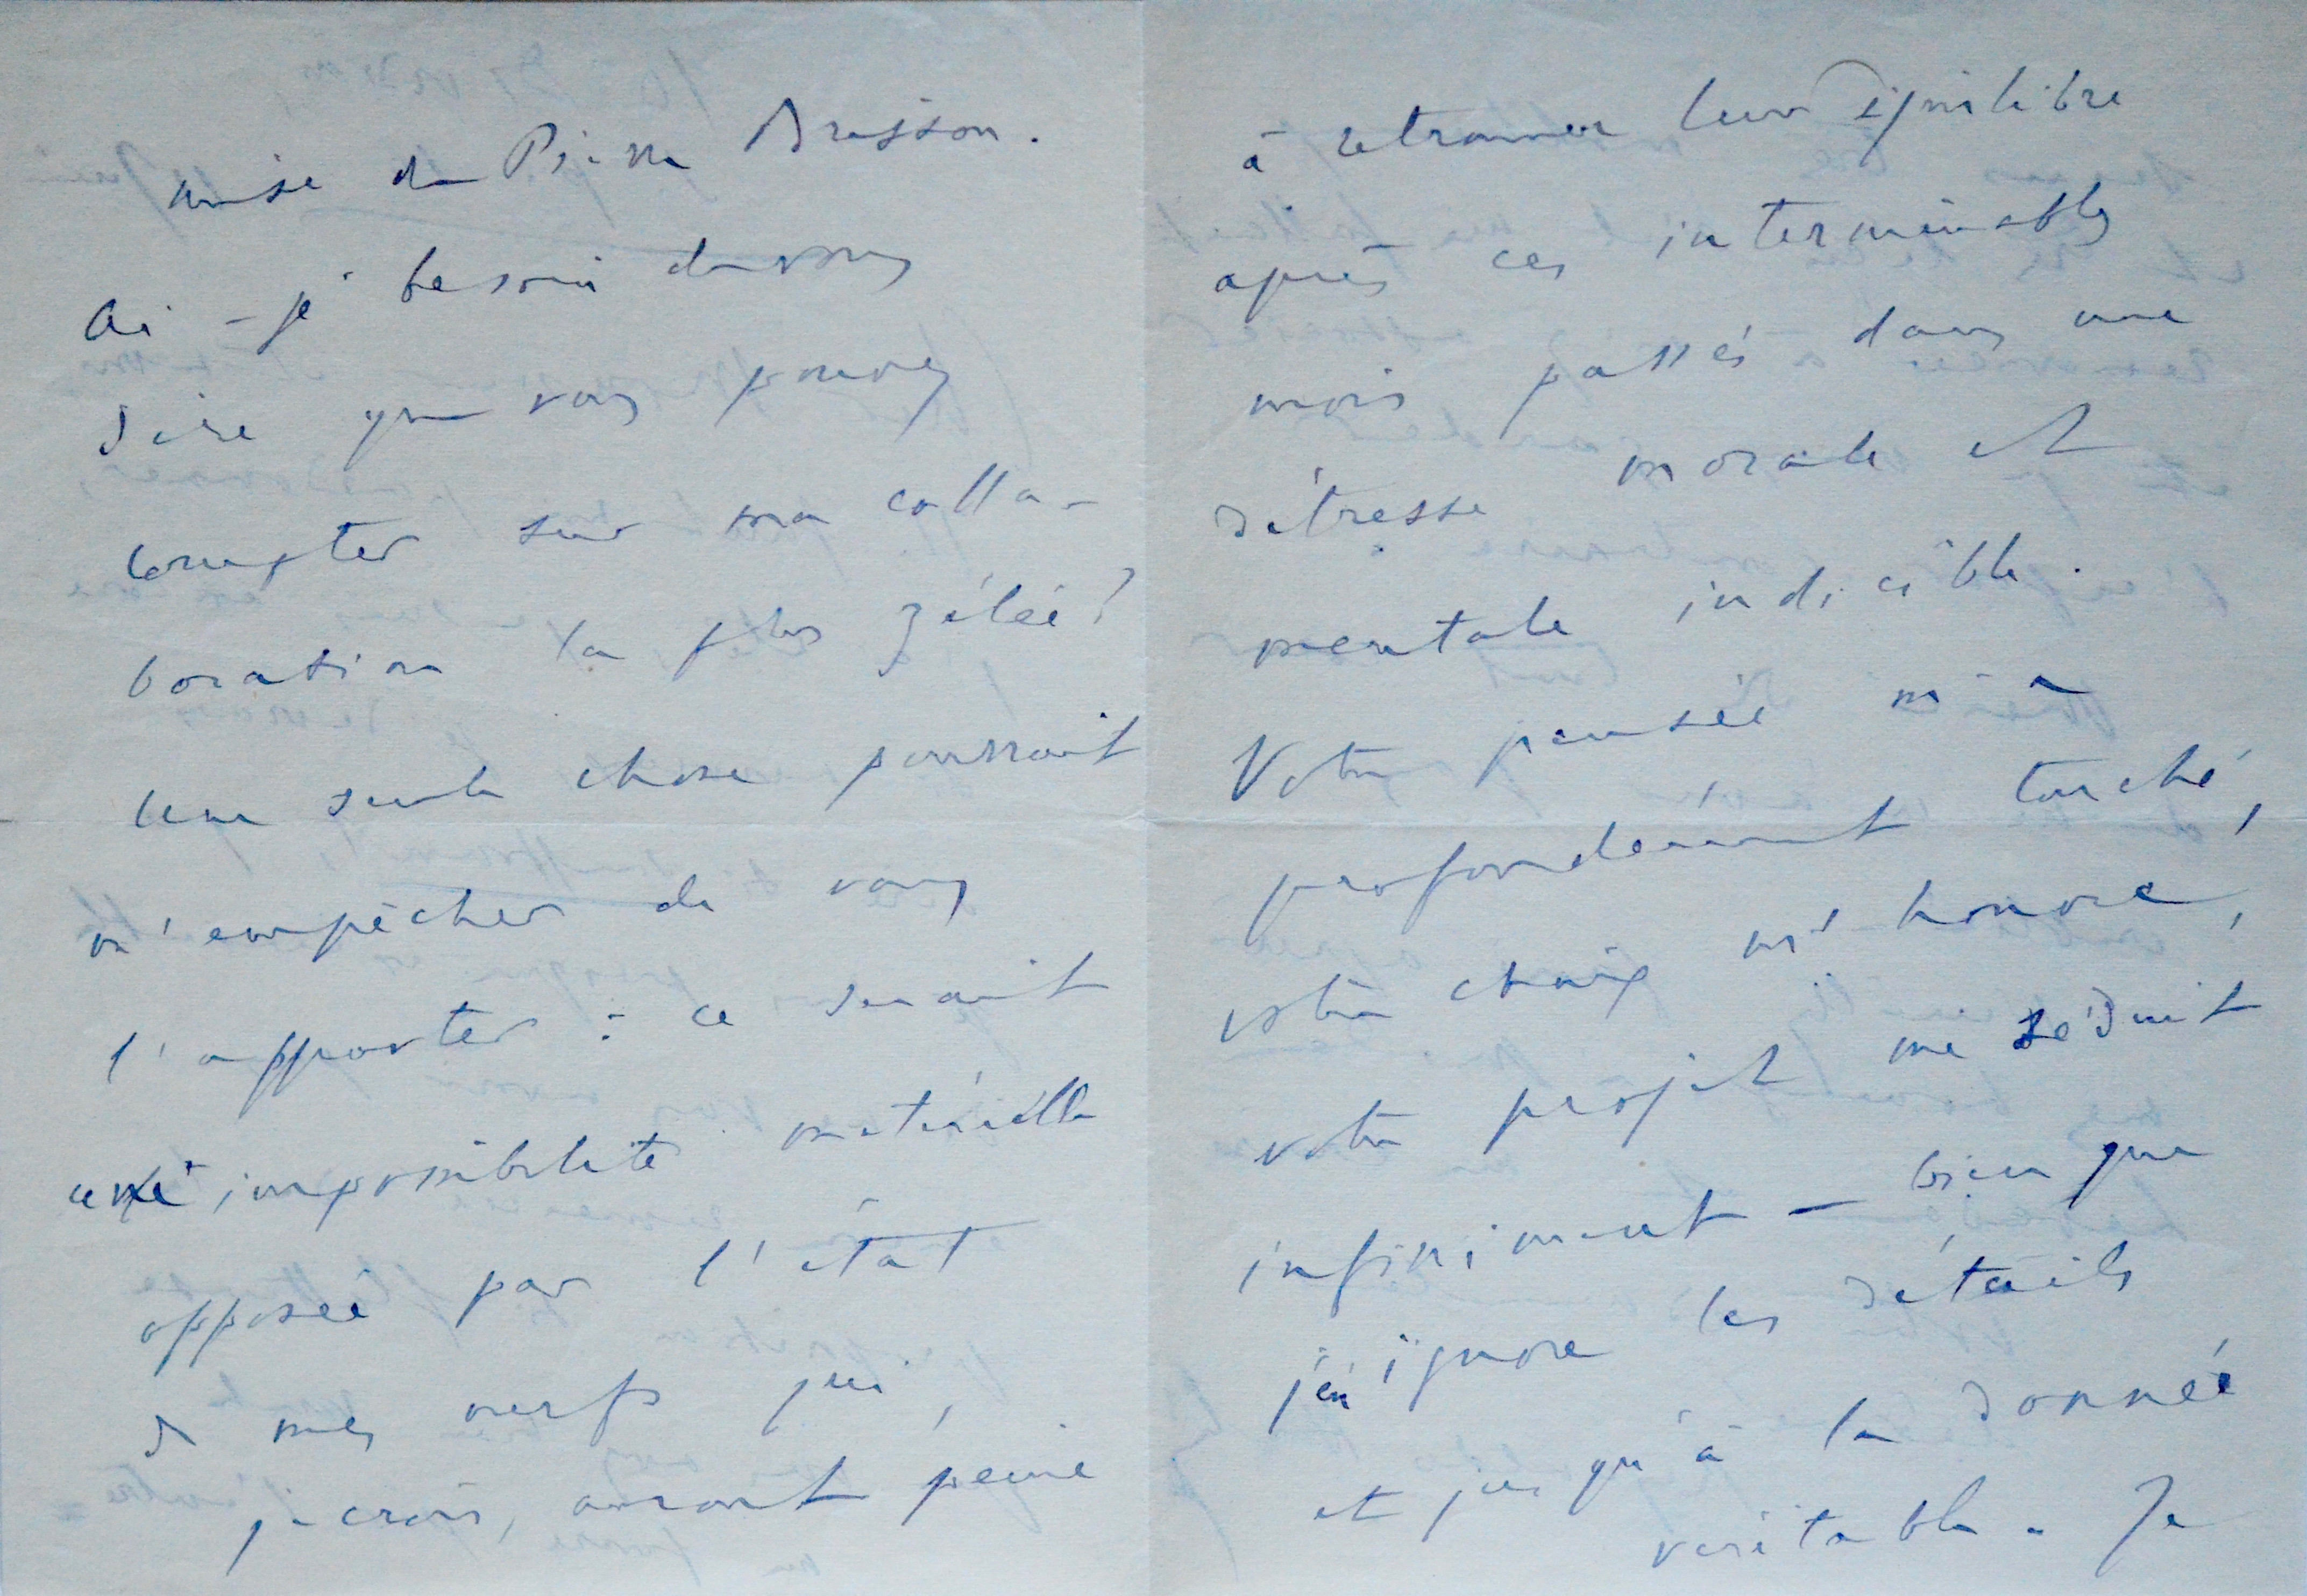 mise de Pierre Brisson.
Ai-je besoin de vous
dire que vous pouvez
compter sur ma colla-
boration la plus zélée?
Une seule chose pourrait
m'empêcher de vous
l'apporter : ce serait
une impossibilité matérielle
opposée par l'état
de mes nerfs qui,
je crois, auront peine
à retrouver leur équilibre
après ces interminables
mois passés dans une
détresse morale et
mentale indicible.
Votre pensée m'a
profondément touché,
votre choix m'honore,
votre projet me séduit
infiniment — bien que
j'en ignore les détails
et jusqu'à la donnée
véritable. Je